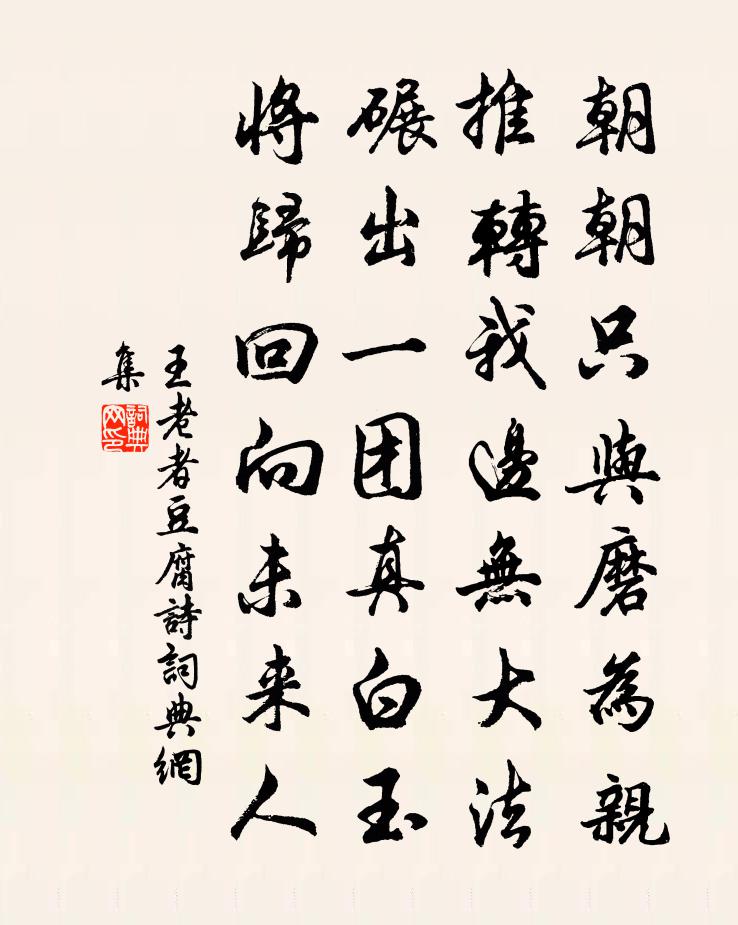 朝朝只與磨為親
推轉我邊無大法
碾出一团真白玉
將歸回向未来人
王老者豆腐詩詞典網
集
詞典
网印